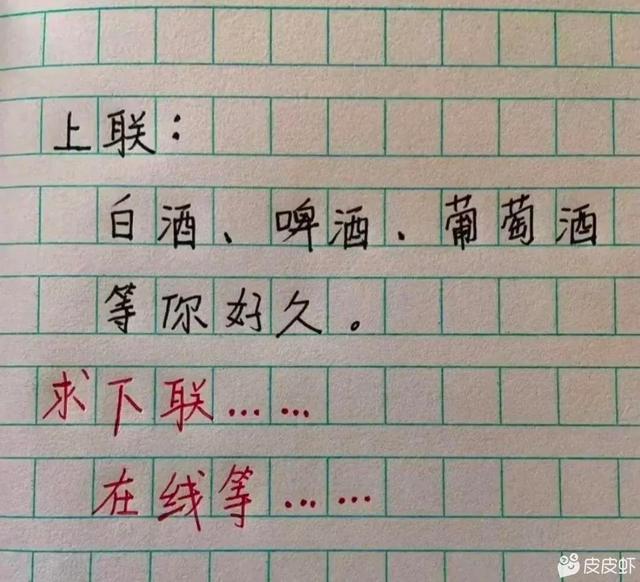 上联：
白酒、啤酒、葡萄酒
等你好久。
求下联……
在线等……
皮皮虾